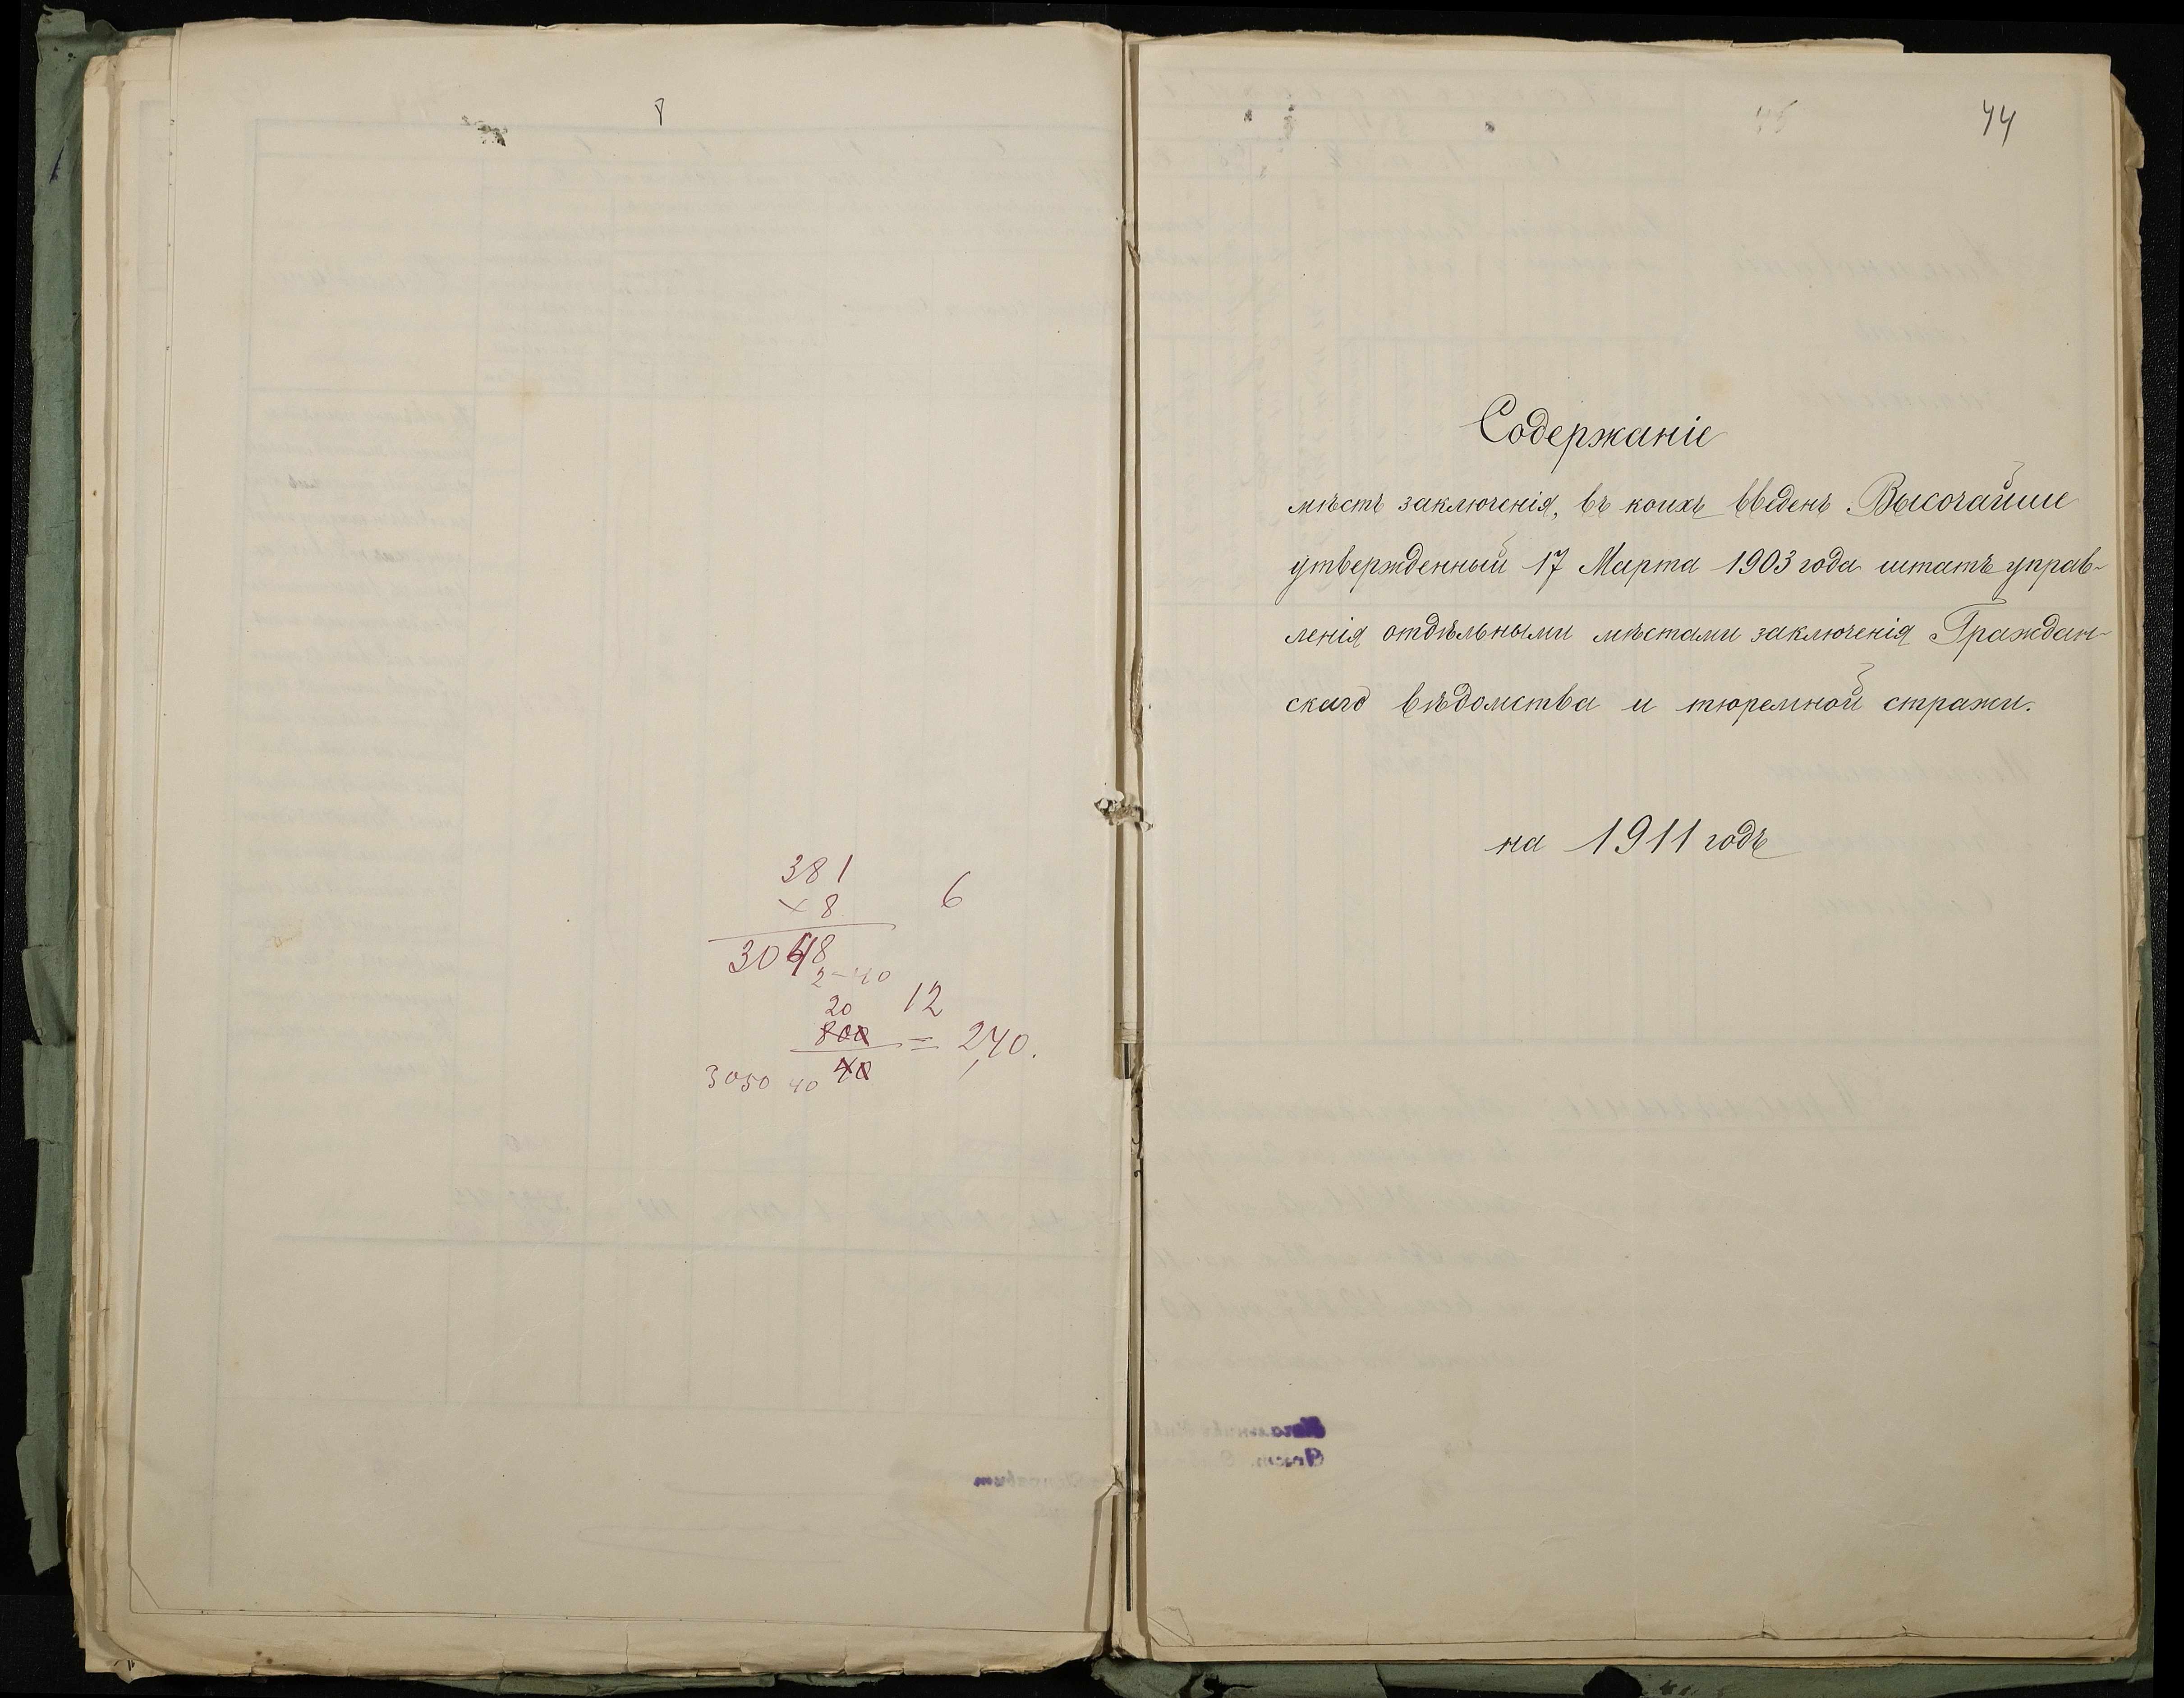 8
381
× 8
6
3048
2-40
20
12
800
= 240.
40
3050 40
44
Содержаніе
мѣстъ заключенія, въ коихъ введенъ Высочайше
утвержденный 17 Марта 1903 года штатъ управ-
ленія отдѣльными мѣстами заключенія Граждан-
скаго вѣдомства и тюремной стражи.
на 1911 годъ